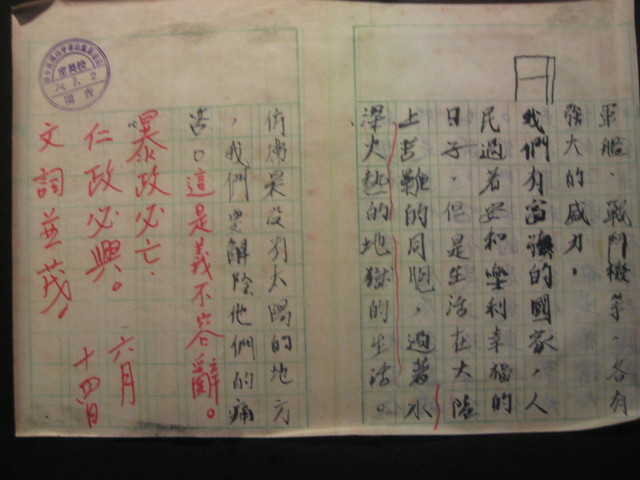 軍艦、戰鬥機等,各有
強大的威力,
我們有富強的國家,人
民過着安和樂利幸福的
日子,但是生活在大陸
上苦難的同胞,過著水
深火熱的地獄的生活。
仿彿是沒有太陽的地方
,我們要解除他們的痛
苦。這是義不容辭。
暴政必亡.
仁政必興。
文詞並茂。
六月
十四日